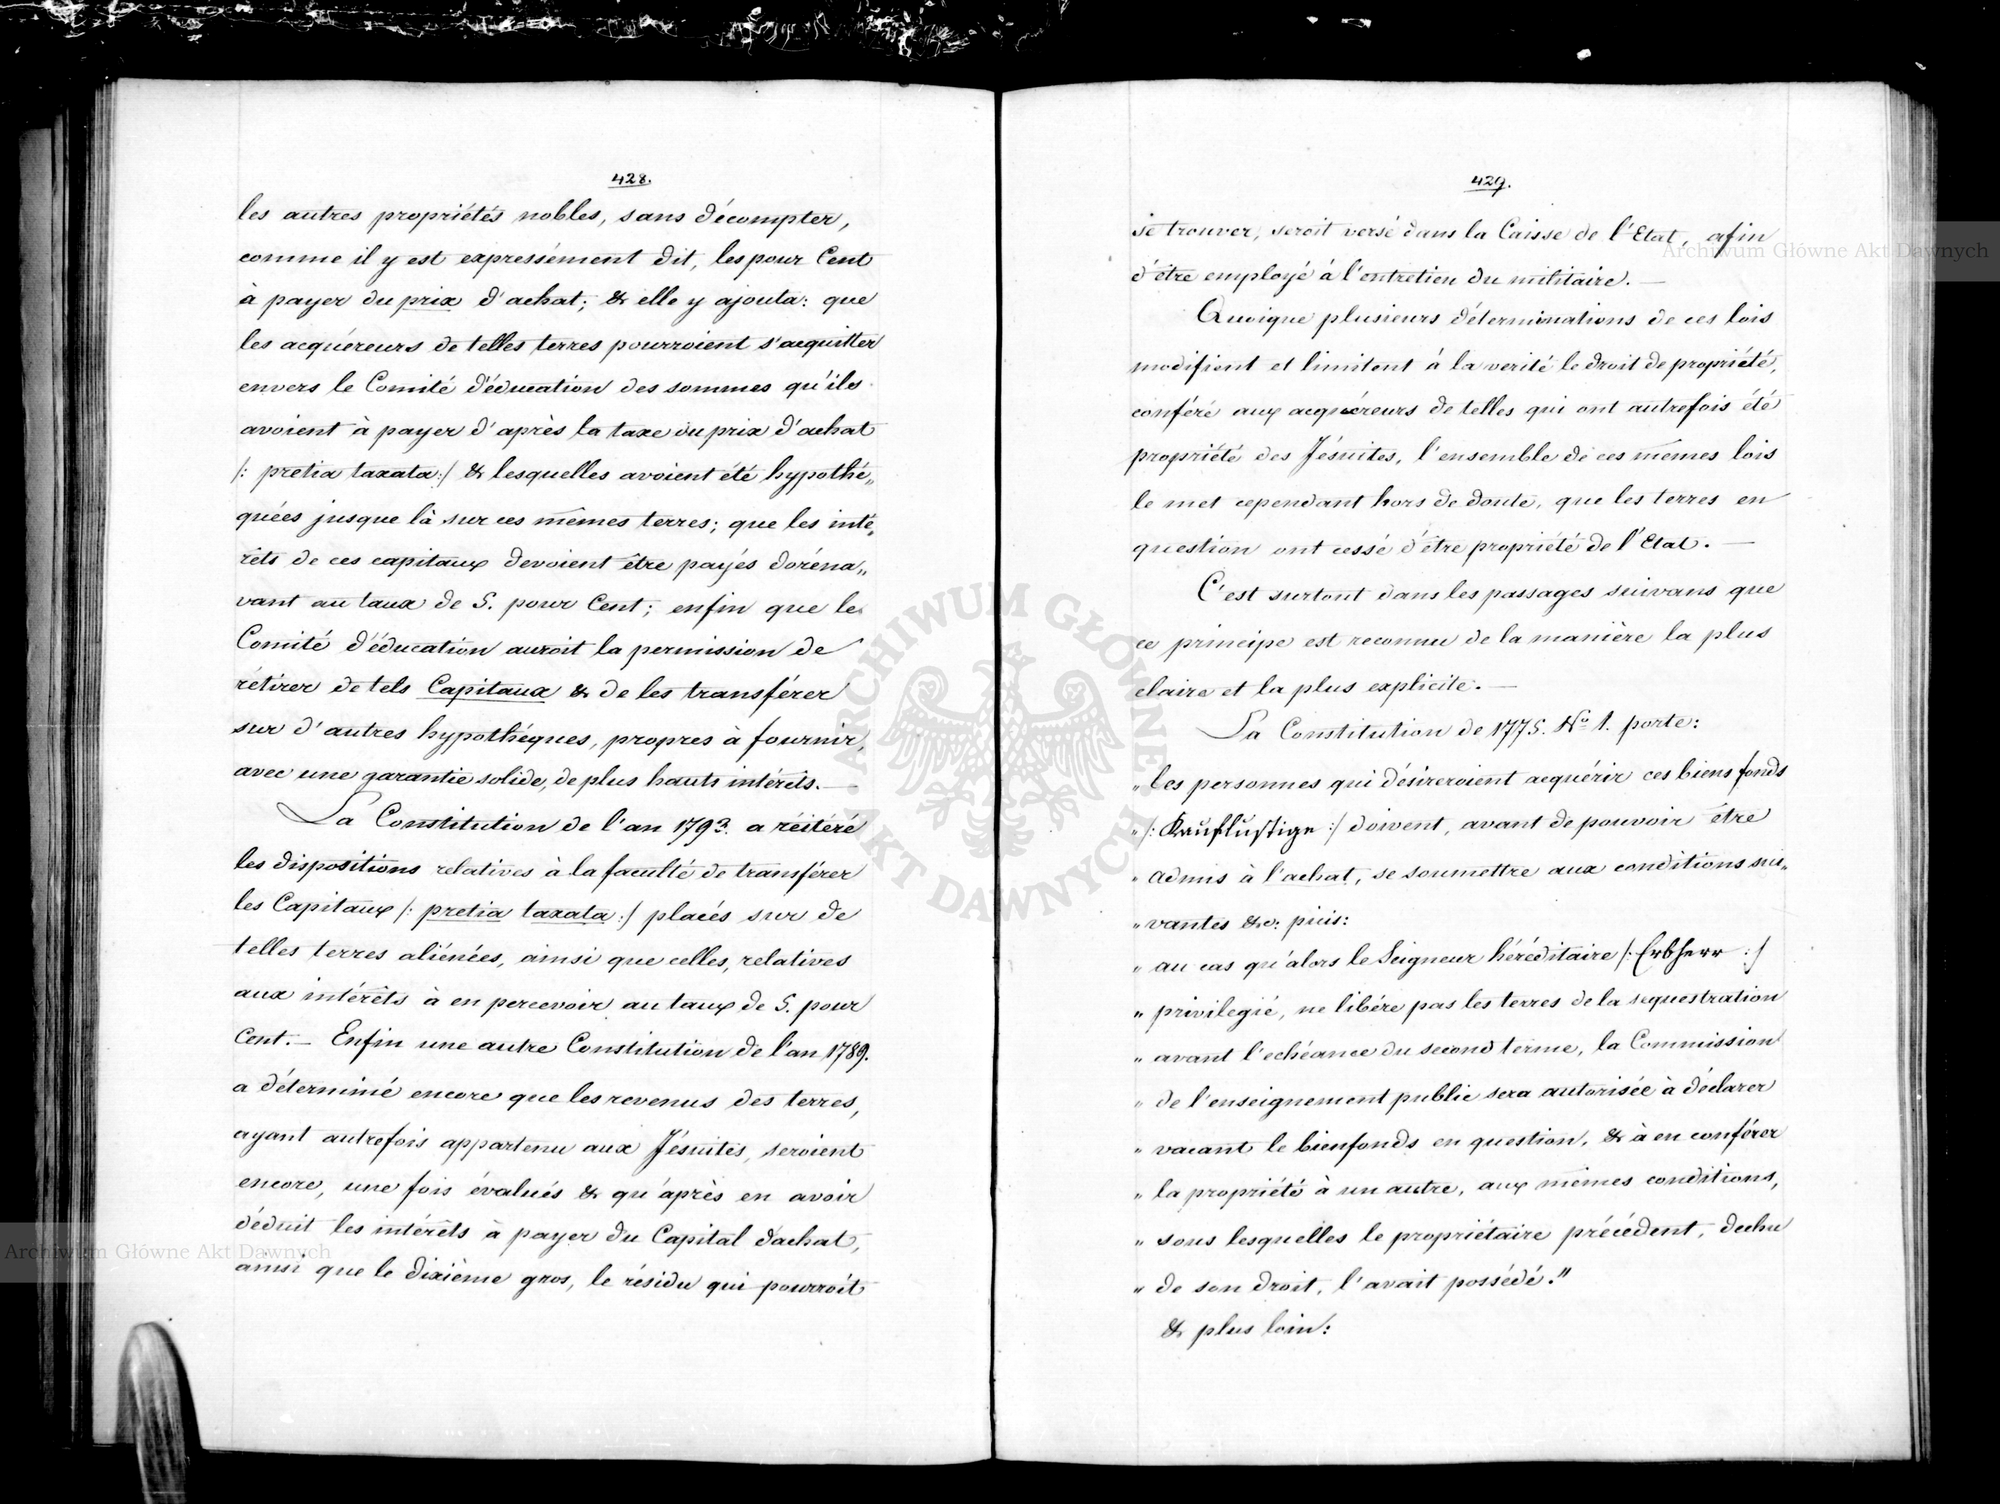 428.
les autres propriétés nobles, sans décompter,
comme il y est expressément dit, les pour Cent
à payer du prix d'achat; & elle y ajouta: que
les acquéreurs de telles terres pourroient s'acquitter
envers le Comité d'éducation des sommes qu'ils
avoient à payer d'après la taxe du prix d'achat
/: pretia taxata :/ & lesquelles avoient été hypothé„
quées jusque là sur ces mêmes terres; que les inté„
rêts de ces capitaux devoient être payés doréna„
vant au taux de 5. pour Cent; enfin que le
Comité d'éducation auroit la permission de
rétirer de tels Capitaux & de les transférer
sur d'autres hypothéques, propres à fournir,
avec une garantie solide, de plus hauts intérêts. —
La Constitution de l'an 1793. a réitéré
les dispositions relatives à la faculté de transférer
les Capitaux /: pretia taxata :/ placés sur de
telles terres aliénées, ainsi que celles, relatives
aux intérêts à en percevoir au taux de 5. pour
Cent. — Enfin une autre Constitution de l'an 1789.
a déterminé encore que les revenus des terres,
ayant autrefois appartenu aux Jésuites, seroient
encore, une fois évalués & qu'après en avoir
déduit les intérêts à payer du Capital d'achat,
ainsi que le dixième gros, le résidu qui pourroit
429.
se trouver, seroit versé dans la Caisse de l'Etat, afin
d'être employé à l'entretien du militaire. —
Quoique plusieurs déterminations de ces lois
modifient et limitent à la verité le droit de propriété,
conféré aux acquéreurs de telles qui ont autrefois été
propriété des Jésuites, l'ensemble de ces mêmes lois
le met cependant hors de doute, que les terres en
question ont cessé d'être propriété de l'Etat. —
C'est surtout dans les passages suivans que
ce principe est reconnu de la manière la plus
claire et la plus explicite. —
La Constitution de 1775. No 1. porte:
„ les personnes qui désireroient acquérir ces biens fonds
„ /: Kauflustige :/ doivent, avant de pouvoir être
„ admis à l'achat, se soumettre aux conditions sui„
„ vantes &c: puis:
„ au cas qu'alors le Seigneur héréditaire /: Erbherr :/
„ privilegié, ne libére pas les terres de la sequestration
„ avant l'echéance du second terme, la Commission
„ de l'enseignement public sera autorisée à déclarer
„ vacant le bienfonds en question, & à en conférer
„ la propriété à un autre, aux mêmes conditions,
„ sous lesquelles le propriétaire précédent, dechu
„ de son droit, l'avait possédé."
& plus loin:
Archiwum Główne Akt Dawnych
Archiwum Główne Akt Dawnych
ARCHIWUM GŁÓWNE AKT DAWNYCH